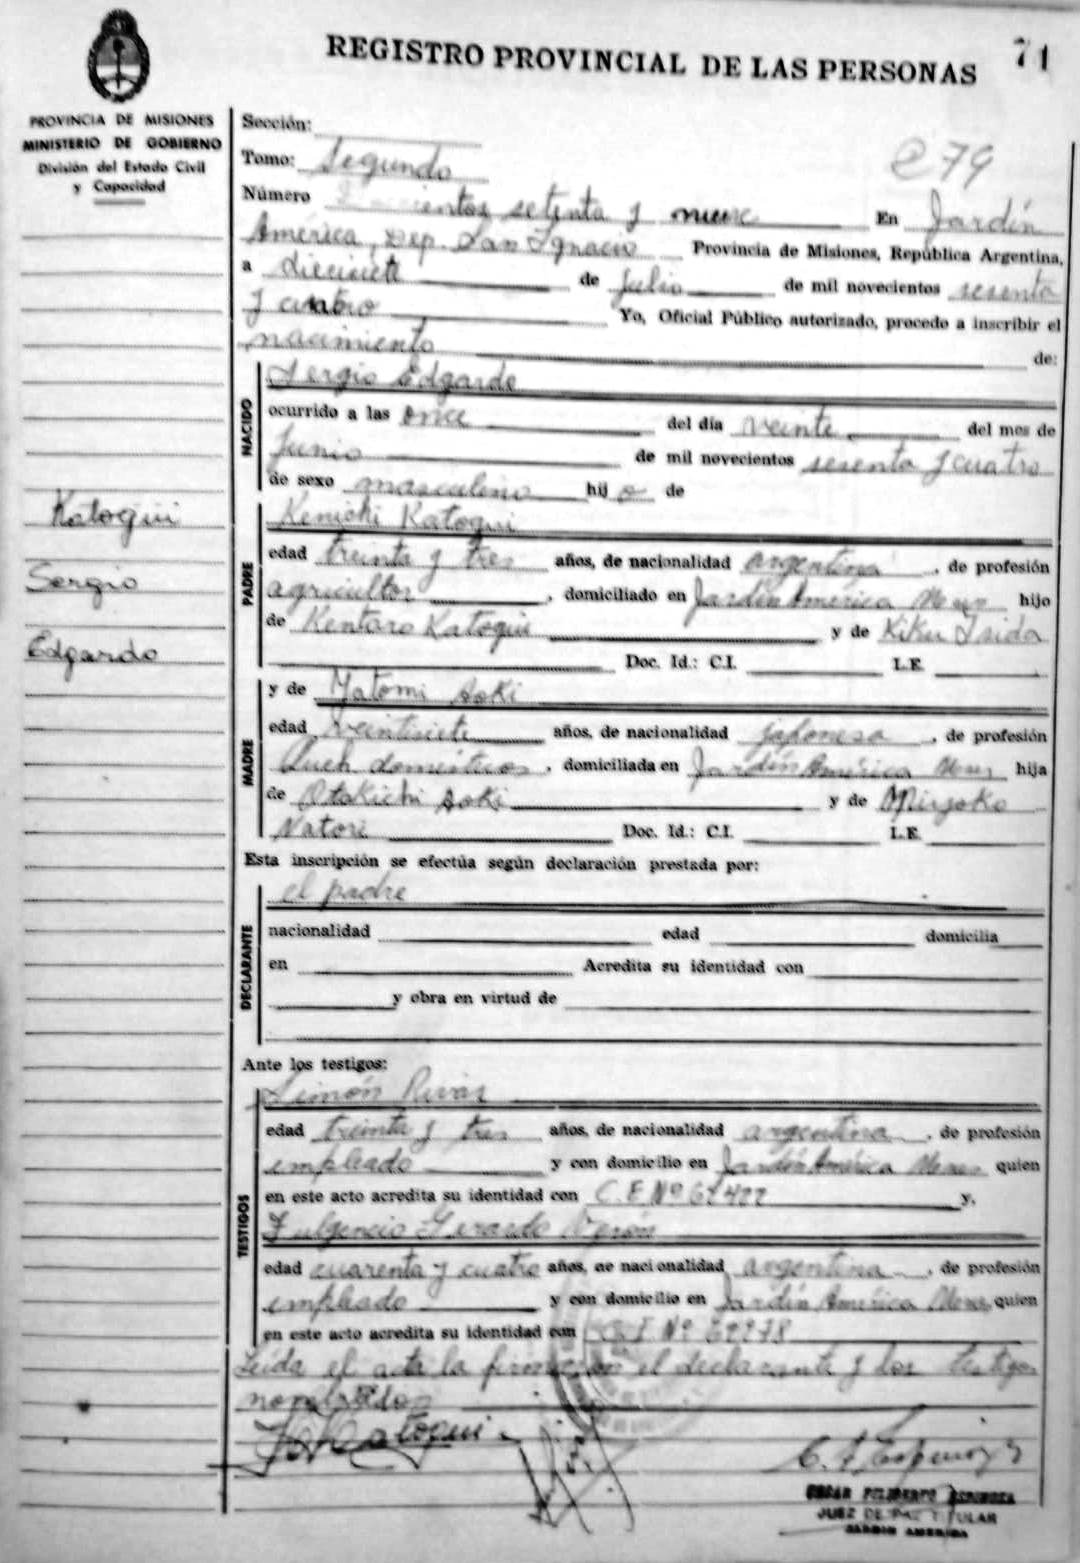 REGISTRO PROVINCIAL DE LAS PERSONAS
71
PROVINCIA DE MISIONES
MINISTERIO DE GOBIERNO
División del Estado Civil
y Capacidad
Katogui
Sergio
Edgardo
Sección:
Tomo: Segundo
279
Número setenta y nueve En Jardín
América, Dep. San Ignacio Provincia de Misiones, República Argentina,
a diecisiete de Julio de mil novecientos sesenta
y cuatro Yo, Oficial Público autorizado, procedo a inscribir el
nacimiento de:
NACIDO
Sergio Edgardo
ocurrido a las once del día veinte del mes de
Junio de mil novecientos sesenta y cuatro
de sexo masculino hijo de
PADRE
Kenichi Katogui
edad treinta y tres años, de nacionalidad argentina, de profesión
agricultor, domiciliado en Jardín América Mnes hijo
de Kentaro Katogui y de Kiku Isida
Doc. Id.: C.I. L.E.
MADRE
y de Yatomi Aoki
edad veintisiete años, de nacionalidad japonesa, de profesión
Queh. domésticos, domiciliada en Jardín América Mnes hija
de Otakichi Aoki y de Miyoko
Natori Doc. Id.: C.I. L.E.
Esta inscripción se efectúa según declaración prestada por:
DECLARANTE
el padre
nacionalidad edad domicilia
en Acredita su identidad con
y obra en virtud de
Ante los testigos:
TESTIGOS
Simón Rivas
edad treinta y tres años, de nacionalidad argentina, de profesión
empleado y con domicilio en Jardín América Mnes quien
en este acto acredita su identidad con C.E. Nº y,
Fulgencio Gerardo Verón
edad cuarenta y cuatro años, de nacionalidad argentina, de profesión
empleado y con domicilio en Jardín América Mnes quien
en este acto acredita su identidad con Nº
Leída el acta la firman el declarante y los testigos
nombrados
Katogui
C. F. Espinoza
OSCAR FILIBERTO ESPINOZA
JUEZ DE PAZ TITULAR
JARDIN AMERICA